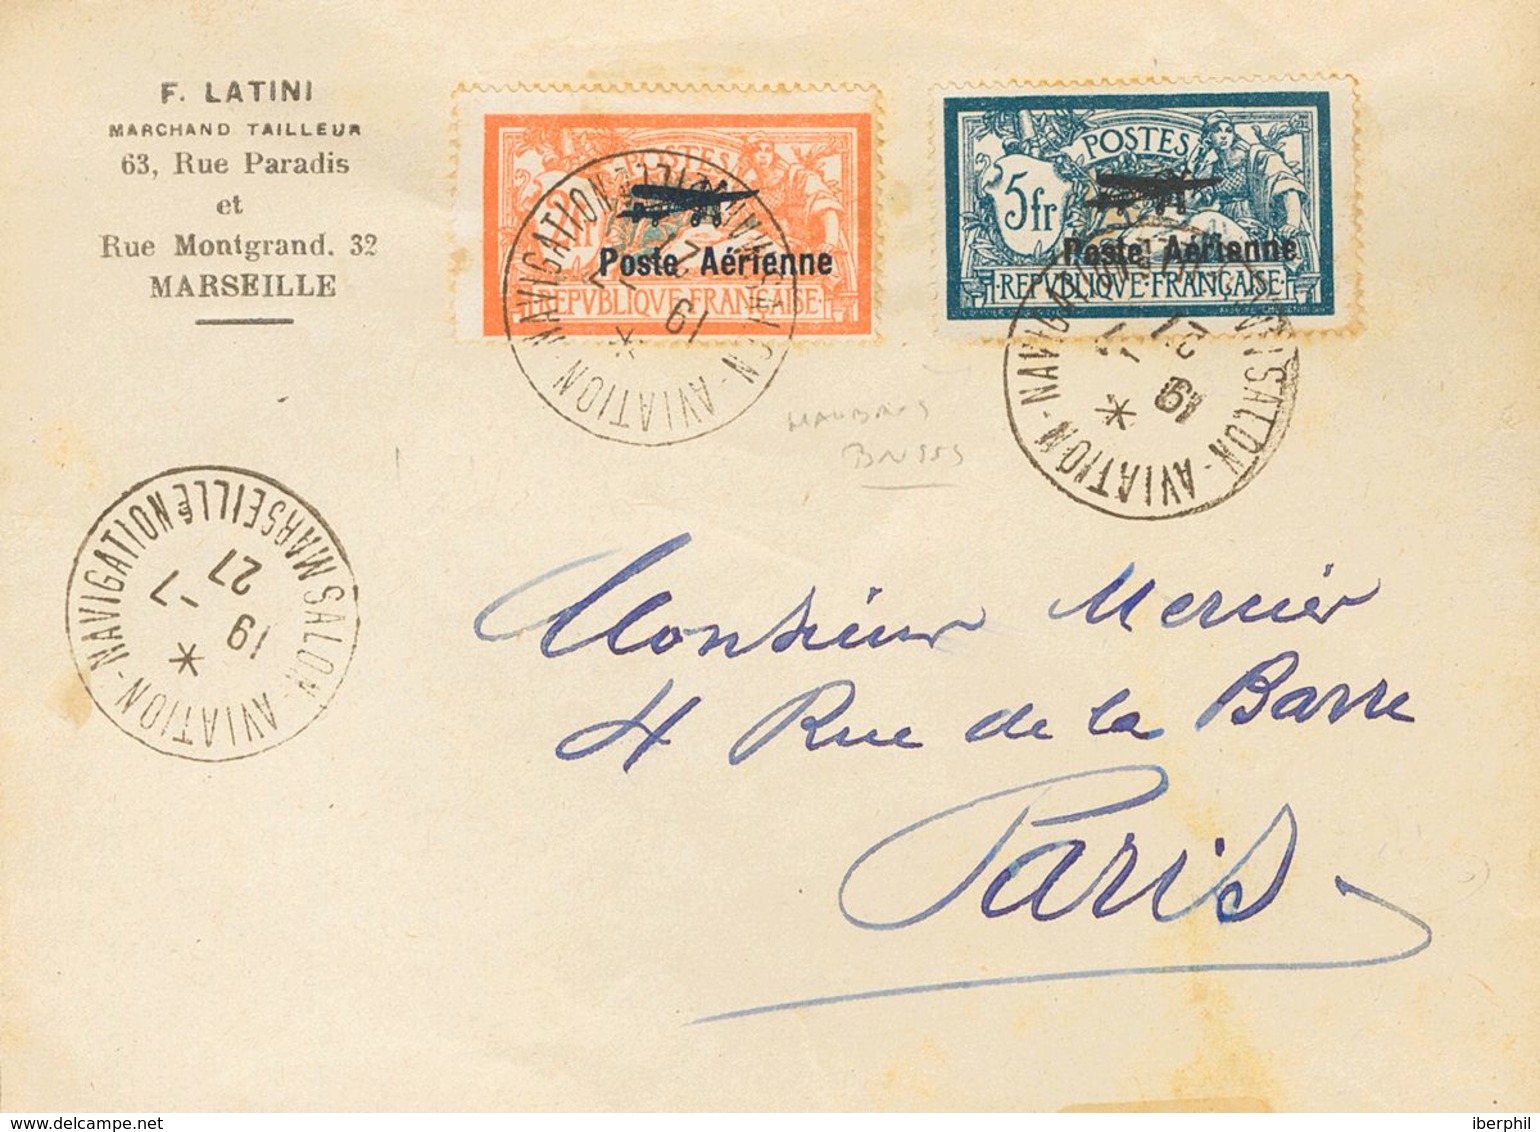 F. LATINI
MARCHAND TAILLEUR
63, Rue Paradis
et
Rue Montgrand. 32
MARSEILLE
2fr
POSTES
Poste Aérienne
REPVBLIQVE·FRANÇAISE
5fr
POSTES
Poste Aérienne
REPVBLIQVE·FRANÇAISE
SALON-AVIATION-NAVIGATION
MARSEILLE
19
-7
27
SALON-AVIATION-NAVIGATION
19
27
SALON-AVIATION-NAVIGATION
MARSEILLE
19
-7
27
Monsieur Mercier
4 Rue de la Barre
Paris
iberphil